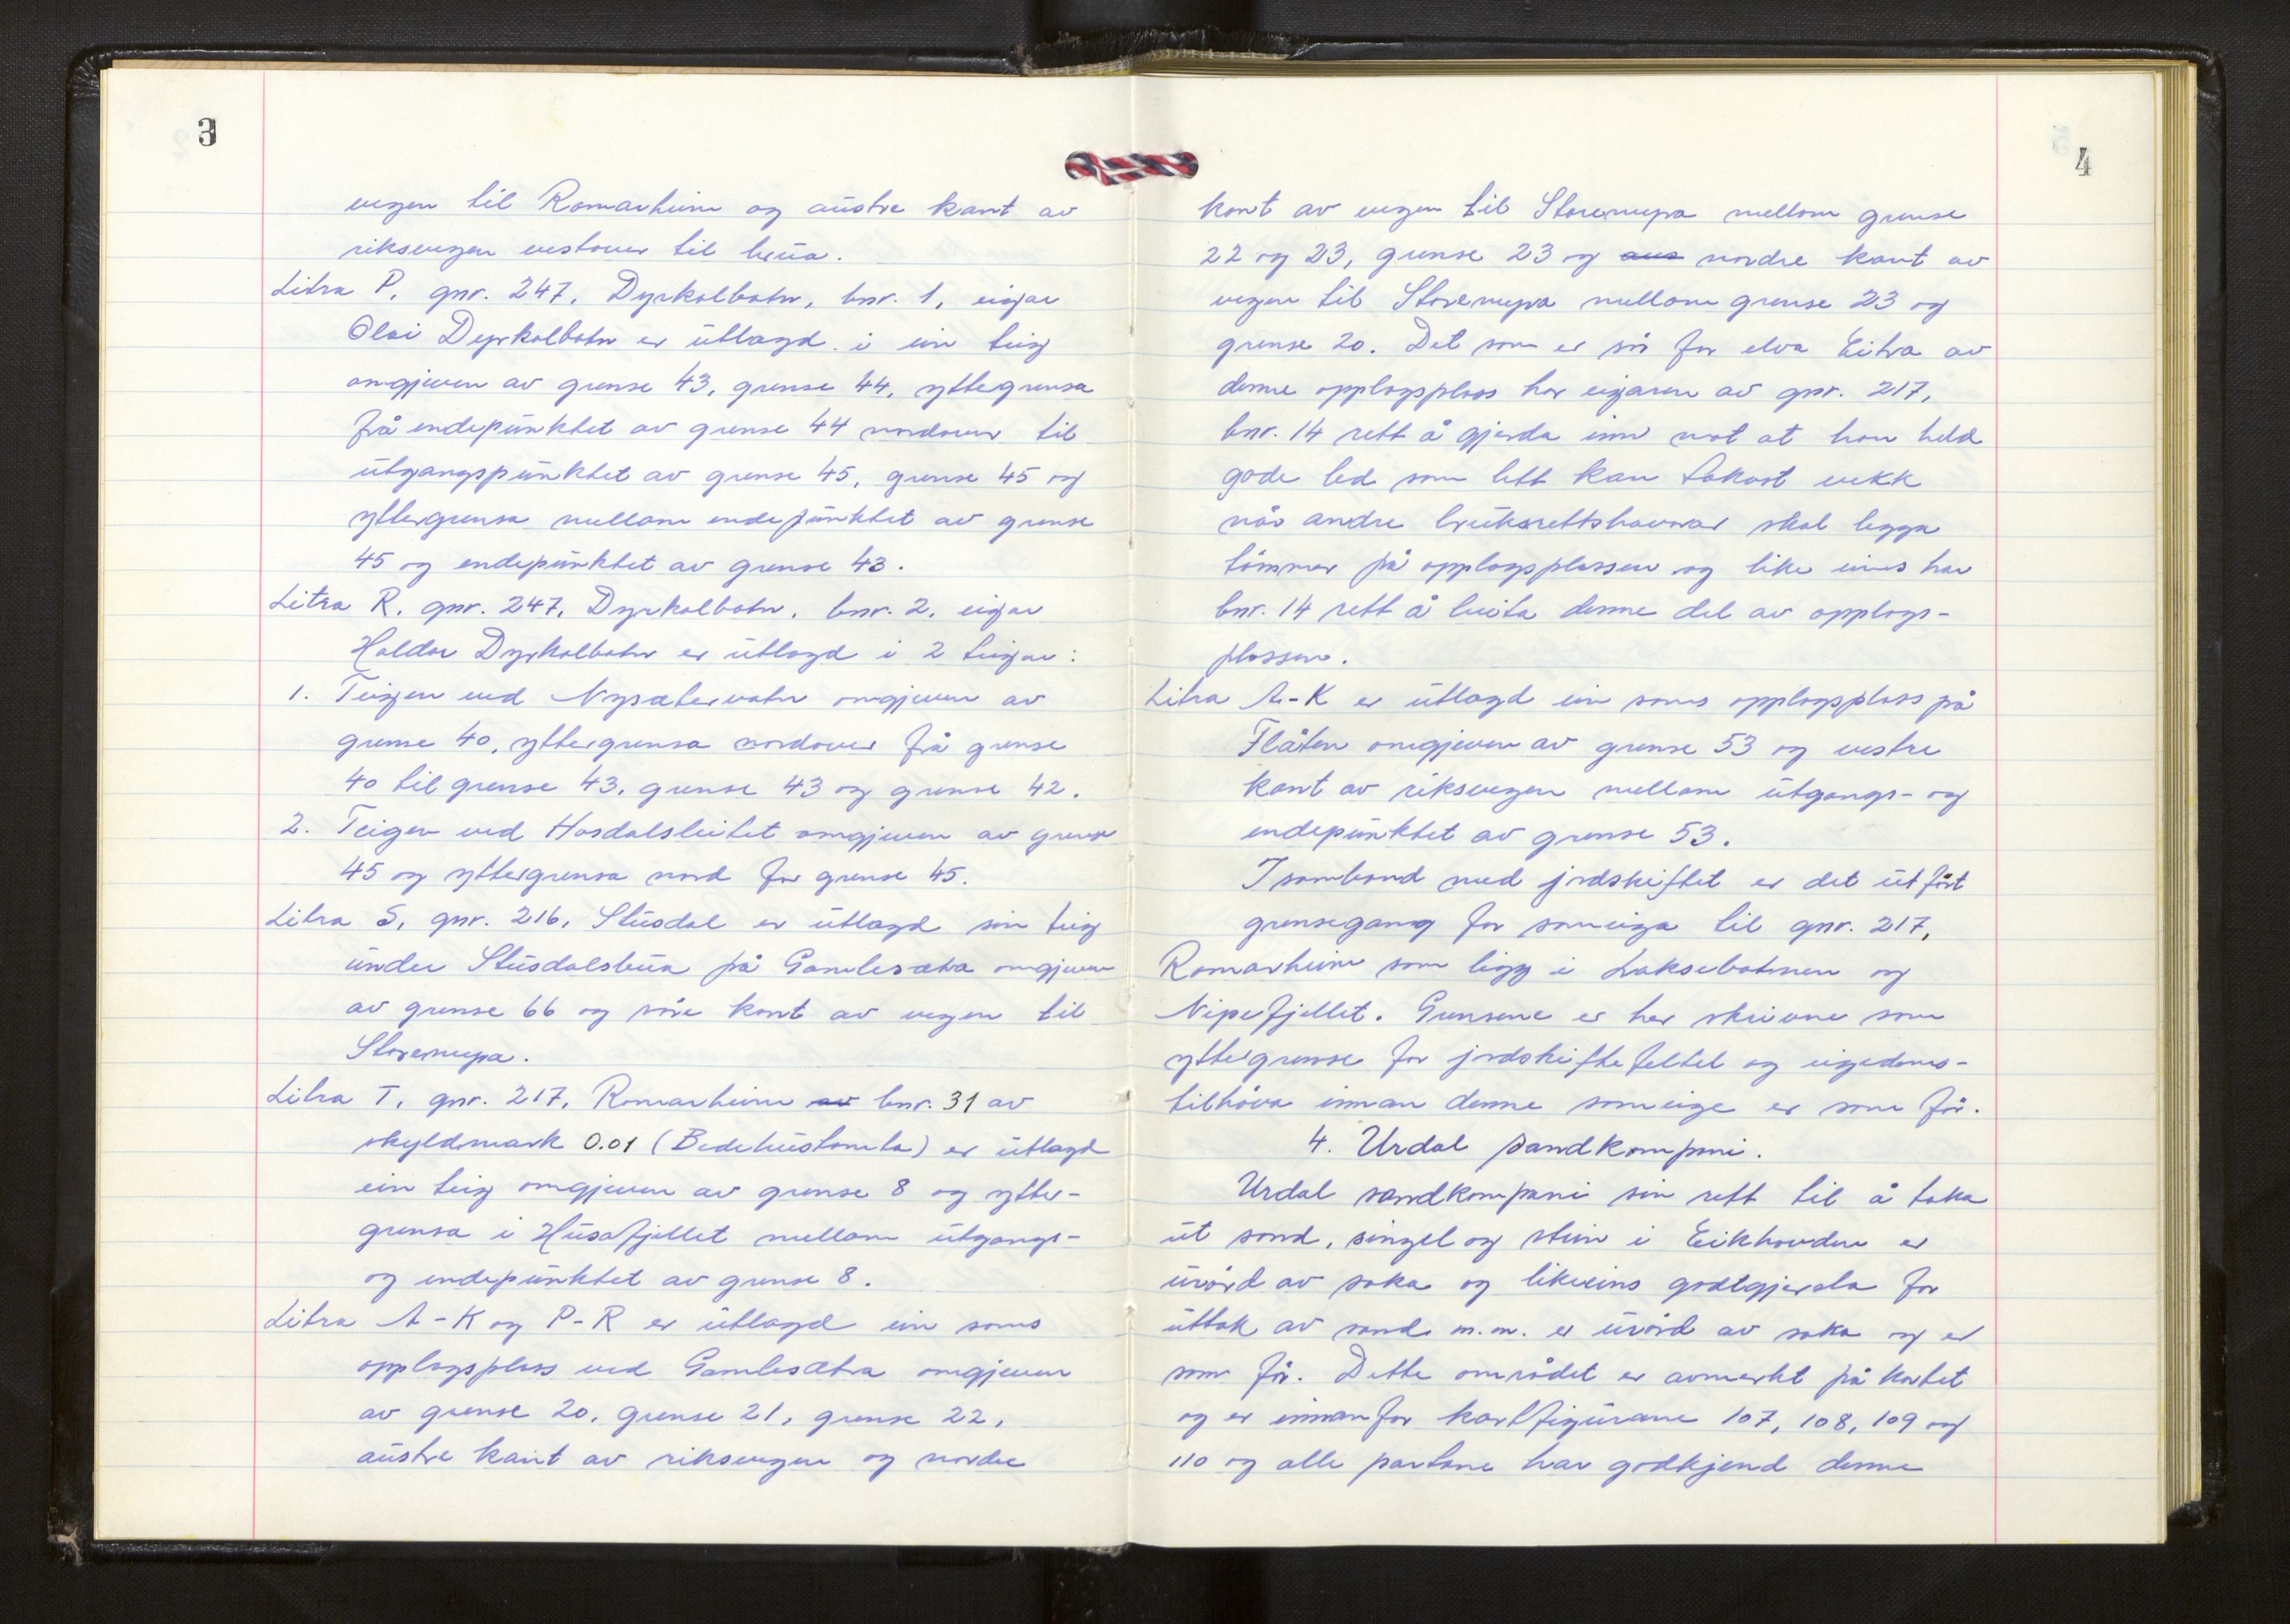 3
vegen til Romarheim og austre kant av
riksvegen vestover til brua.
Litra P, gnr. 247, Dyrkolbotn, bnr. 1, eigar
Olai Dyrkolbotn er utlagd i ein teig
omgjeven av grense 43, grense 44, yttegrensa
frå endepunktet av grense 44 nordover til
utgangspunktet av grense 45, grense 45 og
yttergrensa mellom endepunktet av grense
45 og endepunktet av grense 43.
Litra R, gnr. 247, Dyrkolbotn, bnr. 2, eigar
Haldor Dyrkolbotn er utlagd i 2 teigar:
1. Teigen ved Nysætervatn omgjeven av
grense 40, yttergrensa nordover frå grense
40 til grense 43, grense 43 og grense 42.
2. Teigen ved Hosdalsleitet omgjeven av grense
45 og yttergrensa nord for grense 45.
Litra S, gnr. 216, Stusdal er utlagd sin teig
under Stusdalsbua på Gamlesætra omgjeven
av grense 66 og søre kant av vegen til
Storemyra.
Litra T, gnr. 217, Romarheim av bnr. 31 av
skyldmark 0.01 (Bedehustomta) er utlagd
ein teig omgjeven av grense 8 og ytter-
grensa i Husafjellet mellom utgangs-
og endepunktet av grense 8.
Litra A-K og P-R er utlagd ein sams
opplagsplass ved Gamlesætra omgjeven
av grense 20, grense 21, grense 22,
austre kant av riksvegen og nordre
4
kant av vegen til Storemyra mellom grense
22 og 23, grense 23 og aus nordre kant av
vegen til Storemyra mellom grense 23 og
grense 20. Det som er sør for elva Eitra av
denne opplagsplass har eigaren av gnr. 217,
bnr. 14 rett å gjerda inn mot at han held
gode led som lett kan takast vekk
når andre bruksrettshavarar skal leggja
tømmer på opplagsplassen og like eins har
bnr. 14 rett å beita denne del av opplags-
plassen.
Litra A-K er utlagd ein sams opplagsplass på
Flåten omgjeven av grense 53 og vestre
kant av riksvegen mellom utgangs- og
endepunktet av grense 53.
I samband med jordskiftet er det utført
grensegang for sameiga til gnr. 217,
Romarheim som ligg i Laksebotnen og
Nipefjellet. Grensene er her skrivne som
yttergrense for jordskiftefeltet og eigedoms-
tilhøva innan denne sameige er som før.
4. Urdal sandkompani.
Urdal sandkompani sin rett til å taka
ut sand, singel og stein i Eikhovden er
urørd av saka og likeeins godtgjersla for
uttak av sand m.m. er urørd av saka og er
som før. Dette området er avmerkt på kartet
og er innanfor kartfigurane 107, 108, 109 og
110 og alle partane har godkjend denne